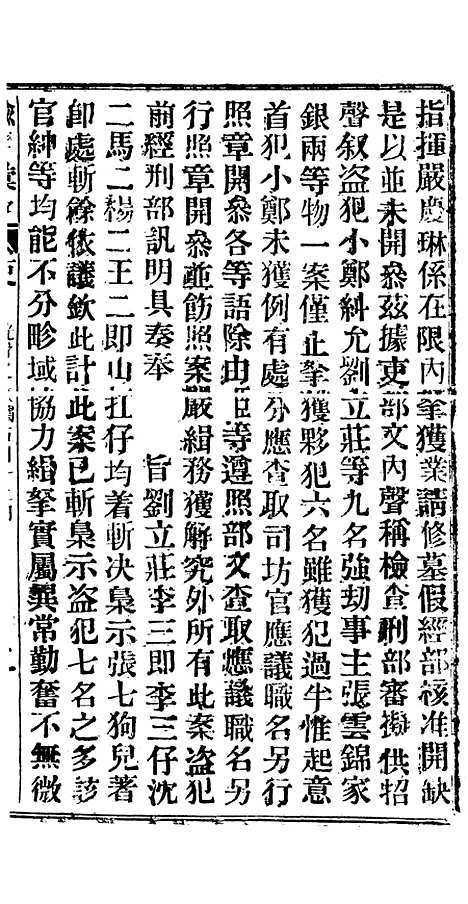 指揮嚴慶琳係在限內拏獲業請修墓假經部核准開缺
是以並未開叅茲據吏部文內聲稱檢查刑部審擬供招
聲叙盗犯小鄭糾允劉立莊等九名強刧事主張雲錦家
銀兩等物一案僅止拏獲夥犯六名雖獲犯過半惟起意
首犯小鄭未獲例有處分應查取司坊官應議職名另行
照章開叅各等語除由臣等遵照部文查取應議職名另
行照章開叅並飭照案嚴緝務獲解究外所有此案盗犯
前經刑部訊明具奏奉　　旨劉立莊李三即李三仔沈
二馬二楊二王二即山扛仔均着斬决梟示張七狗兒著
即處斬餘依議欽此計此案已斬梟示盗犯七名之多該
官紳等均能不分畛域協力緝拏實屬異常勤奮不無微